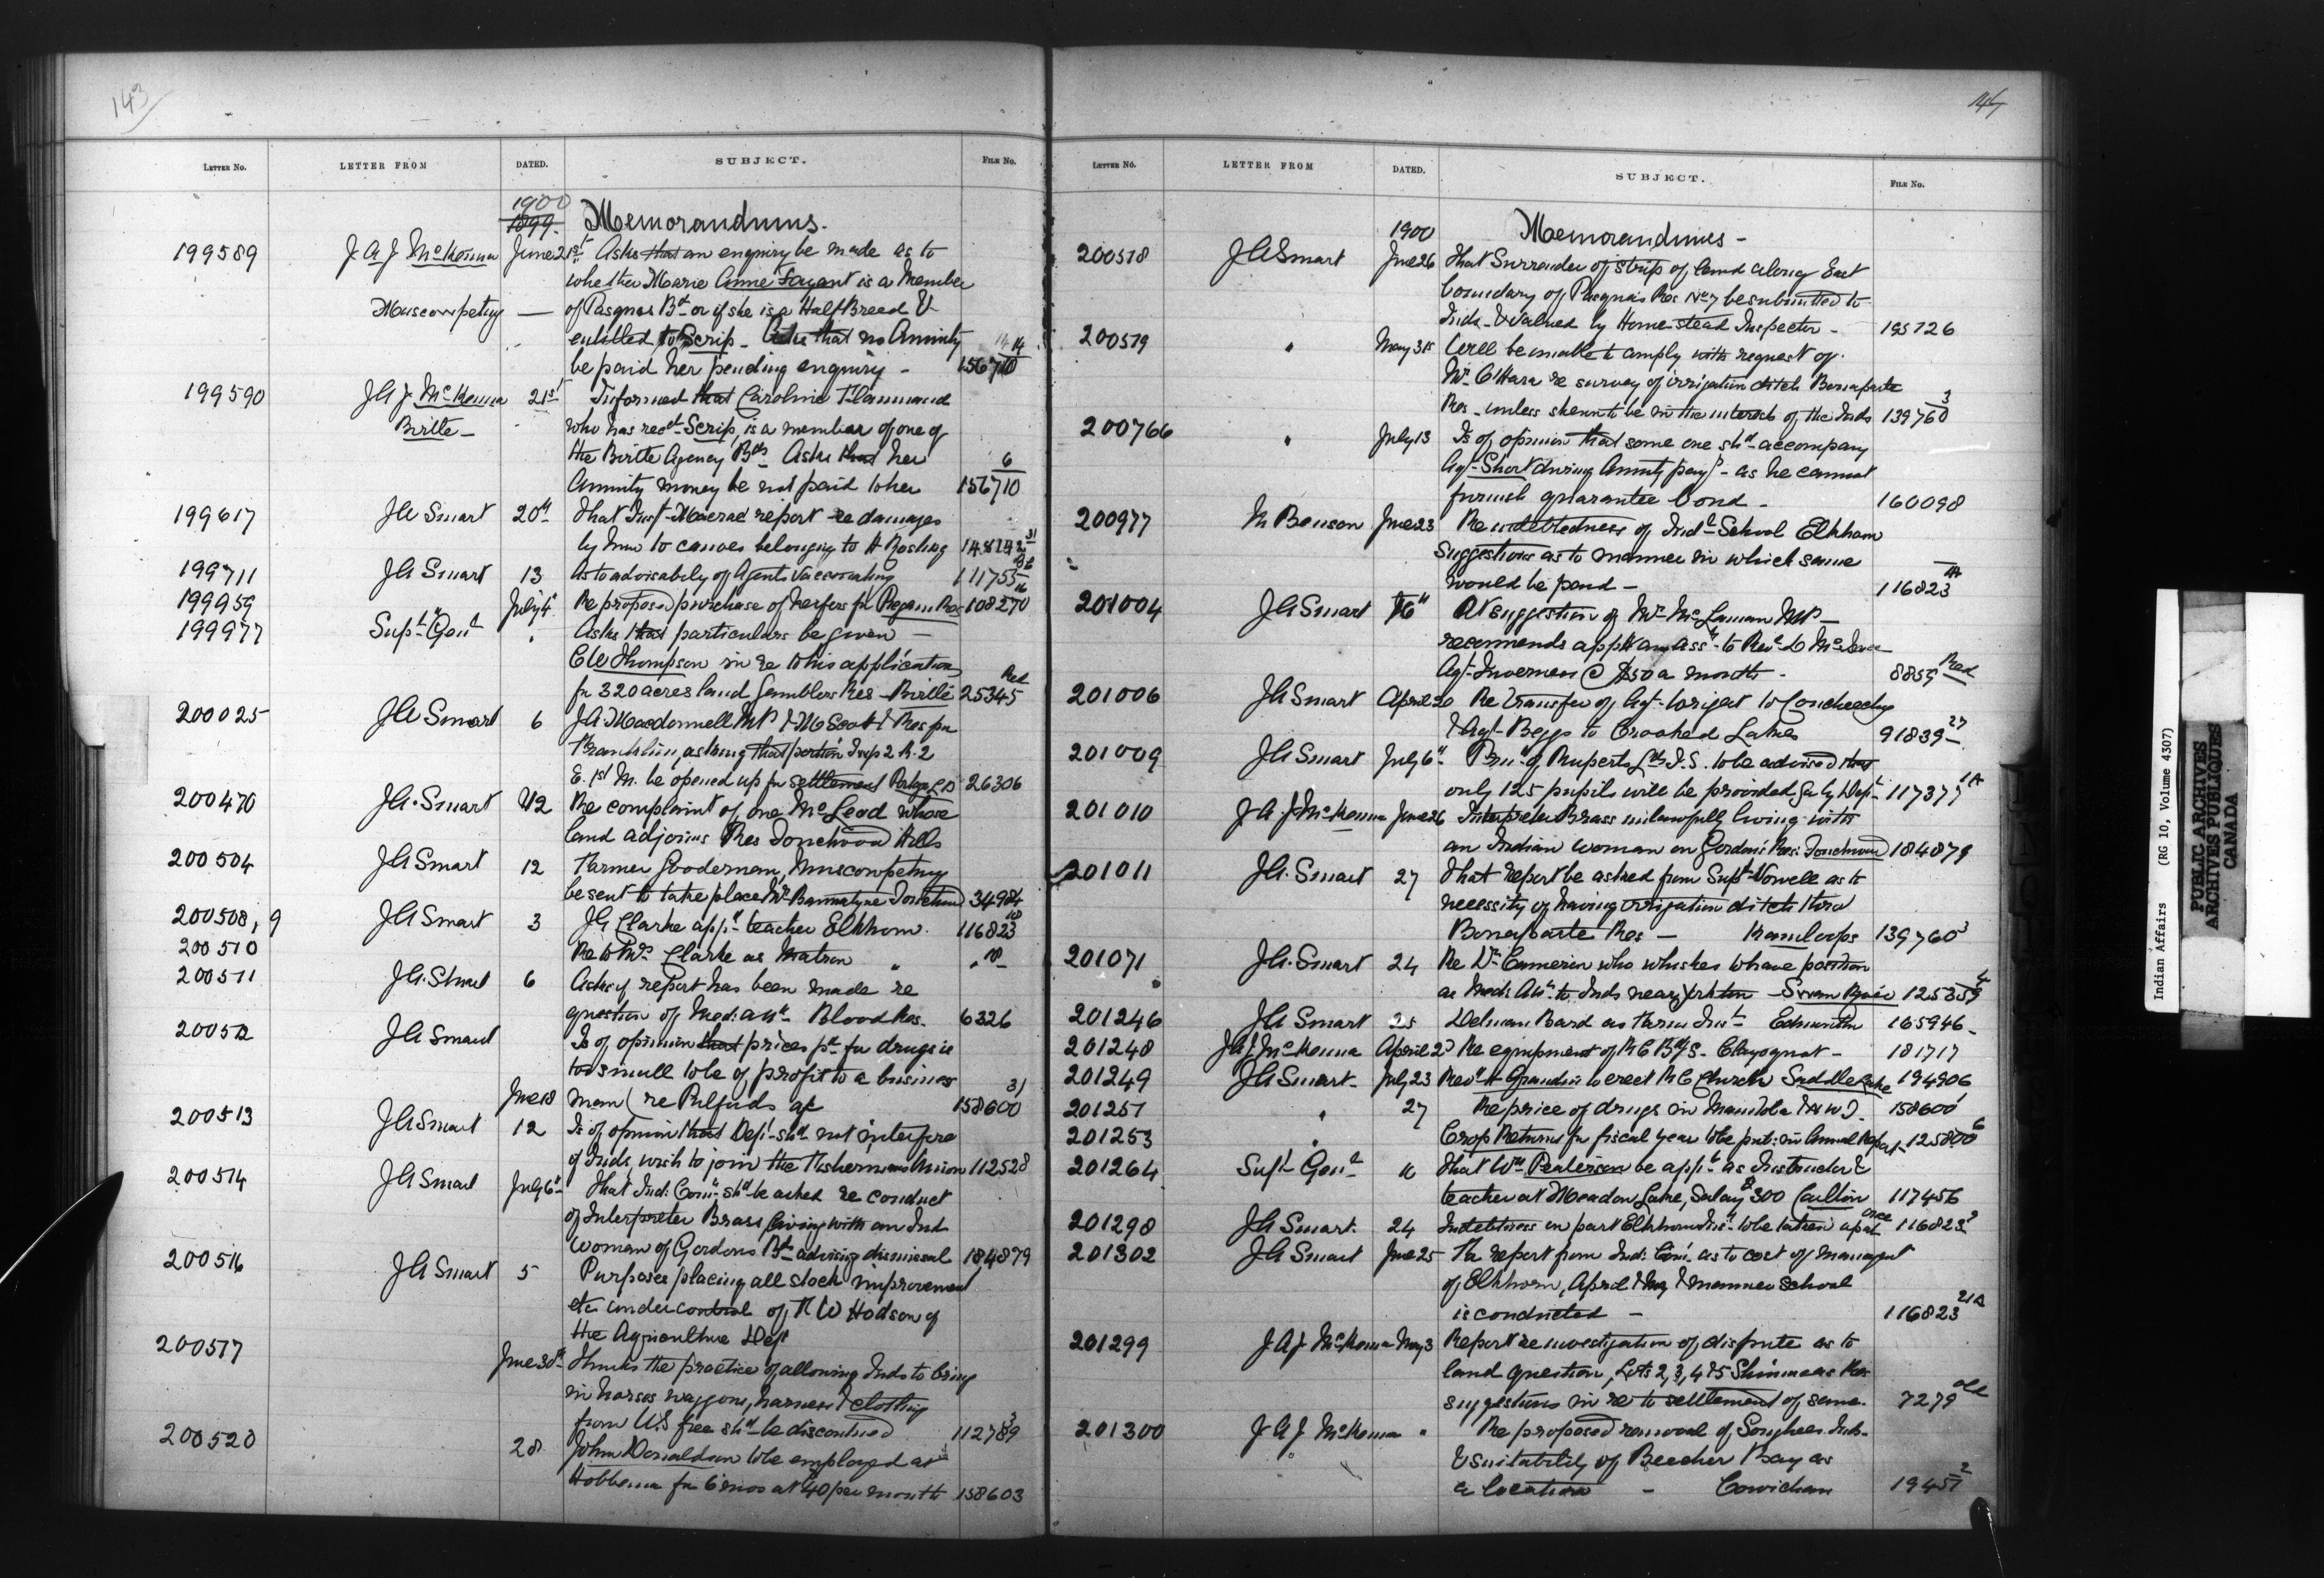 143
LETTER NO. LETTER FROM DATED. SUBJECT. FILE NO.
1900
1899. Memorandums.
199589 J A J McKenna June 21st Asks that an enquiry be made as to
whether Marie Anne Fayant is a Member
Muscowpetung — of Pasquas Bd or if she is a Half Breed &
entitled to Scrip - Asks that no Annuity 14
be paid her pending enquiry - 156710
199590 J A J McKenna 21st Informed that Caroline Flammand
Birtle - who has recd Scrip, is a member of one of
the Birtle Agency Bds Asks that her 6
Annuity money be not paid to her 156710
199617 J A Smart 20th That Inst Macrae report re damages
by to canoes belonging to H 148142 31
199711 J A Smart 13 As to advisabily of Agents Vaccinating 111755
199959 July 4 Re proposed purchase of heifers for Regan Res 108270
199977 Supt Genl " Asks that particulars be given -
C W Thompson in re to his application Red
for 320 acres land Gamblers Res - Birtle 25345
200025 J A Smart 6 J A Macdonnell MP & Scott & Res for
Franklin, asking that portion Twp 2 R. 2
E. 1st M. be opened up for settlement 26306
200470 J A Smart 12 Re complaint of one McLeod whose
land adjoins Res Touchwood Hills
200504 J A Smart 12 Farmer Gooderman, Muscowpetung
be sent to take place Mr Bannatyne Touchwd 34984
200508, 9 J A Smart 3 J G Clarke appd teacher Elkhorn. 116823
200510 Re to Mrs Clarke as Matron " "
200511 J A Smart 6 Asks if report has been made re
question of Med: attn Blood Res. 6326
200512 J A Smart Is of opinion that prices pd for drugs is
too small to be of profit to a business 31
June 18 man (re Pulfords a/c 158600
200513 J A Smart 12 Is of opinion that Dept shd not interfere
if Inds wish to join the Fishermens Union 112528
200514 J A Smart July 6th That Ind: Comr shd be asked re conduct
of Interpreter Brass living with an Ind
woman of Gordons Bd advising dismissal 184879
200516 J A Smart 5 Purposes placing all stock improvement
etc under control of F W Hodson of
the Agriculture Dept
200517 June 30th Thinks the practice of allowing Inds to bring
in horses waggons, harness & clothing
from U.S. free shd be discontinued 112789 3
200520 28 John Donaldson to be employed at
Hobbema for 6 mos at 40 per month 158603
LETTER NO. LETTER FROM DATED. SUBJECT. FILE NO.
1900 Memorandums -
200518 J A Smart June 26 That Surrender of Strip of land along East
boundary of Pasqua's Res No 7 be submitted to
Inds & Valued by Homestead Inspector -
200519 " May 31st Will be unable to comply with request of
Mr O'Hara re survey of irrigation ditch Bonaparte 3
Res - unless shewn to be in the interests of the Inds 139760
200766 " July 13 Is of opinion that some one shd accompany
Agt Short during Annuity payts - as he cannot
furnish guarantee bond - 160098
200977 M Benson June 23 Re indebtedness of Indl School Elkhorn
suggestions as to manner in which same
would be paid - 116823
201004 J A Smart At suggestion of Mr McLennan MP -
recommends appt an asst to Revd D
Agt Inverness @ $50 a month - 8859 Red
201006 J A Smart April 20 Re transfer of Agt Wright to Touchwood
& Agt Beggs to Crooked Lakes 91839 27
201009 J A Smart July 6th Prin of Ruperts Ld I.S. to be advised that
only 125 pupils will be provided for by Dept 117377 1A
201010 J A J McKenna June 26 Interpreter Brass unlawfully living with
an Indian woman on Gordon's Res: Touchwood 184879
201011 J A Smart 27 That report be asked from Supt Vowell as to
necessity of having irrigation ditch thro'
Bonaparte Res - Kamloops 139760 3
201071 J A Smart 24 Re Dr Cameron who whishes to have position
as Med: Attn to Inds near Yorkton - Swan River 125359 4
201246 J A Smart 25 Delman Bard as Farm Inst Edmonton 165946
201248 J A J McKenna April 25 Re equipment of R C Bdg S. Clayoquot - 181717
201249 J A Smart July 23 Revd H Grandin to erect R C Church Saddle Lake 194906
201251 " 27 Re price of drugs in Manitoba & N W T. 158600
201253 " Crop Returns for fiscal year to be put: in Annual Report 125800 6
201264 Supt Genl That Wm be appd as Instructor &
teacher at Meadow Lake, Salary $300 Carlton 117456
201298 J A Smart 24 in part Elkhorn to be taken up at once 116823
201302 J A Smart June 25 Re report from Ind: Com. as to cost of managmt
of Elkhorn, April & May & manner school
is conducted - 116823 21A
201299 J A J McKenna May 3 Report re investigation of dispute as to
land question, Lots 2, 3, 4 & 5 Res
suggestions in re to settlement of same. 7279
201300 J A J McKenna " Re proposed removal of Songhees Inds
& suitability of Beecher Bay as
a location - Cowichan 19451 2
Indian Affairs (RG 10, Volume 4307)
PUBLIC ARCHIVES
ARCHIVES PUBLIQUES
CANADA